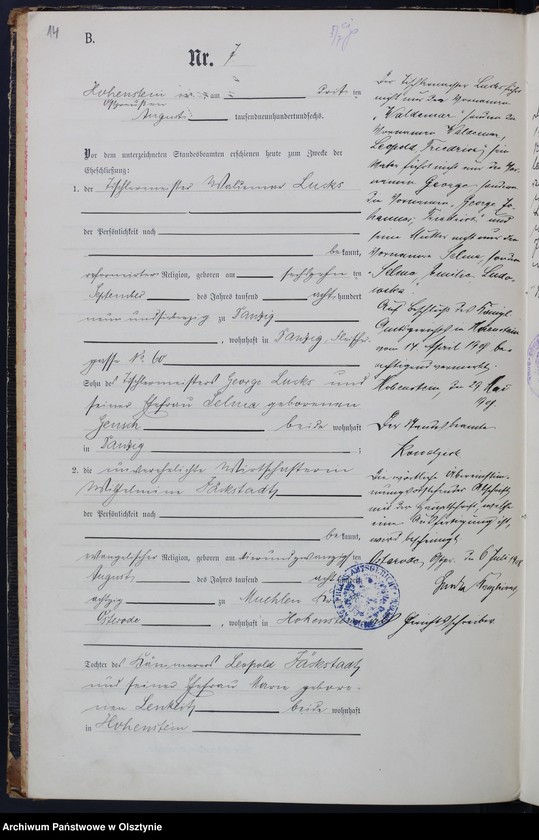 14
B.
Nr. 7
Hohenstein in am Drit ten
Ostpreußen
August tausendneunhundertundsechs.
Vor dem unterzeichneten Standesbeamten erschienen heute zum Zwecke der
Eheschließung:
1. der Tischlermeister Waldemar Lucks
der Persönlichkeit nach
bekannt,
reformirter Religion, geboren am sechzehn ten
September des Jahres tausend acht hundert
neunundsiebzig zu Danzig
, wohnhaft in Danzig, Fleischer
gasse No 60
Sohn des Tischlermeisters George Lucks und
seiner Ehefrau Selma geborenen
Jensch beide wohnhaft
in Danzig ;
2. die unverehelichte Wirtschafterin
Wilhelmine Jäckstadt
der Persönlichkeit nach
bekannt,
evangelischer Religion, geboren am vierundzwanzigsten
August des Jahres tausend acht
achtzig zu Muehlen Kreis
Osterode , wohnhaft in Hohenstein
Tochter des Kämmerers Leopold Jäckstadt
und seiner Ehefrau Marie gebore-
nen Lenkert beide wohnhaft
in Hohenstein
Der Tischlermeister Lucks führt
nicht nur den Vornamen
"Waldemar" sondern die
Vornamen Waldemar,
Leopold, Friedrich; sein
Vater führt nicht nur den Vor-
namen George, sondern
die Vornamen "George Jo-
hannes, Friedrich" und
seine Mutter nicht nur den
Vornamen Selma, sondern
Selma, Emilie, Ludo-
wika.
Auf Beschluß des Königl.
Amtsgerichts in Hohenstein
vom 14 April 1908 be-
richtigend vermerkt.
Hohenstein, den 29 Mai
Der Standesbeamte
Die wörtliche Übereinstim-
mit der Hauptschrift, welche
wird bescheinigt
Osterode, Ostpr. den 6 Juli 1908
Gerichtsschreiber
Archiwum Państwowe w Olsztynie